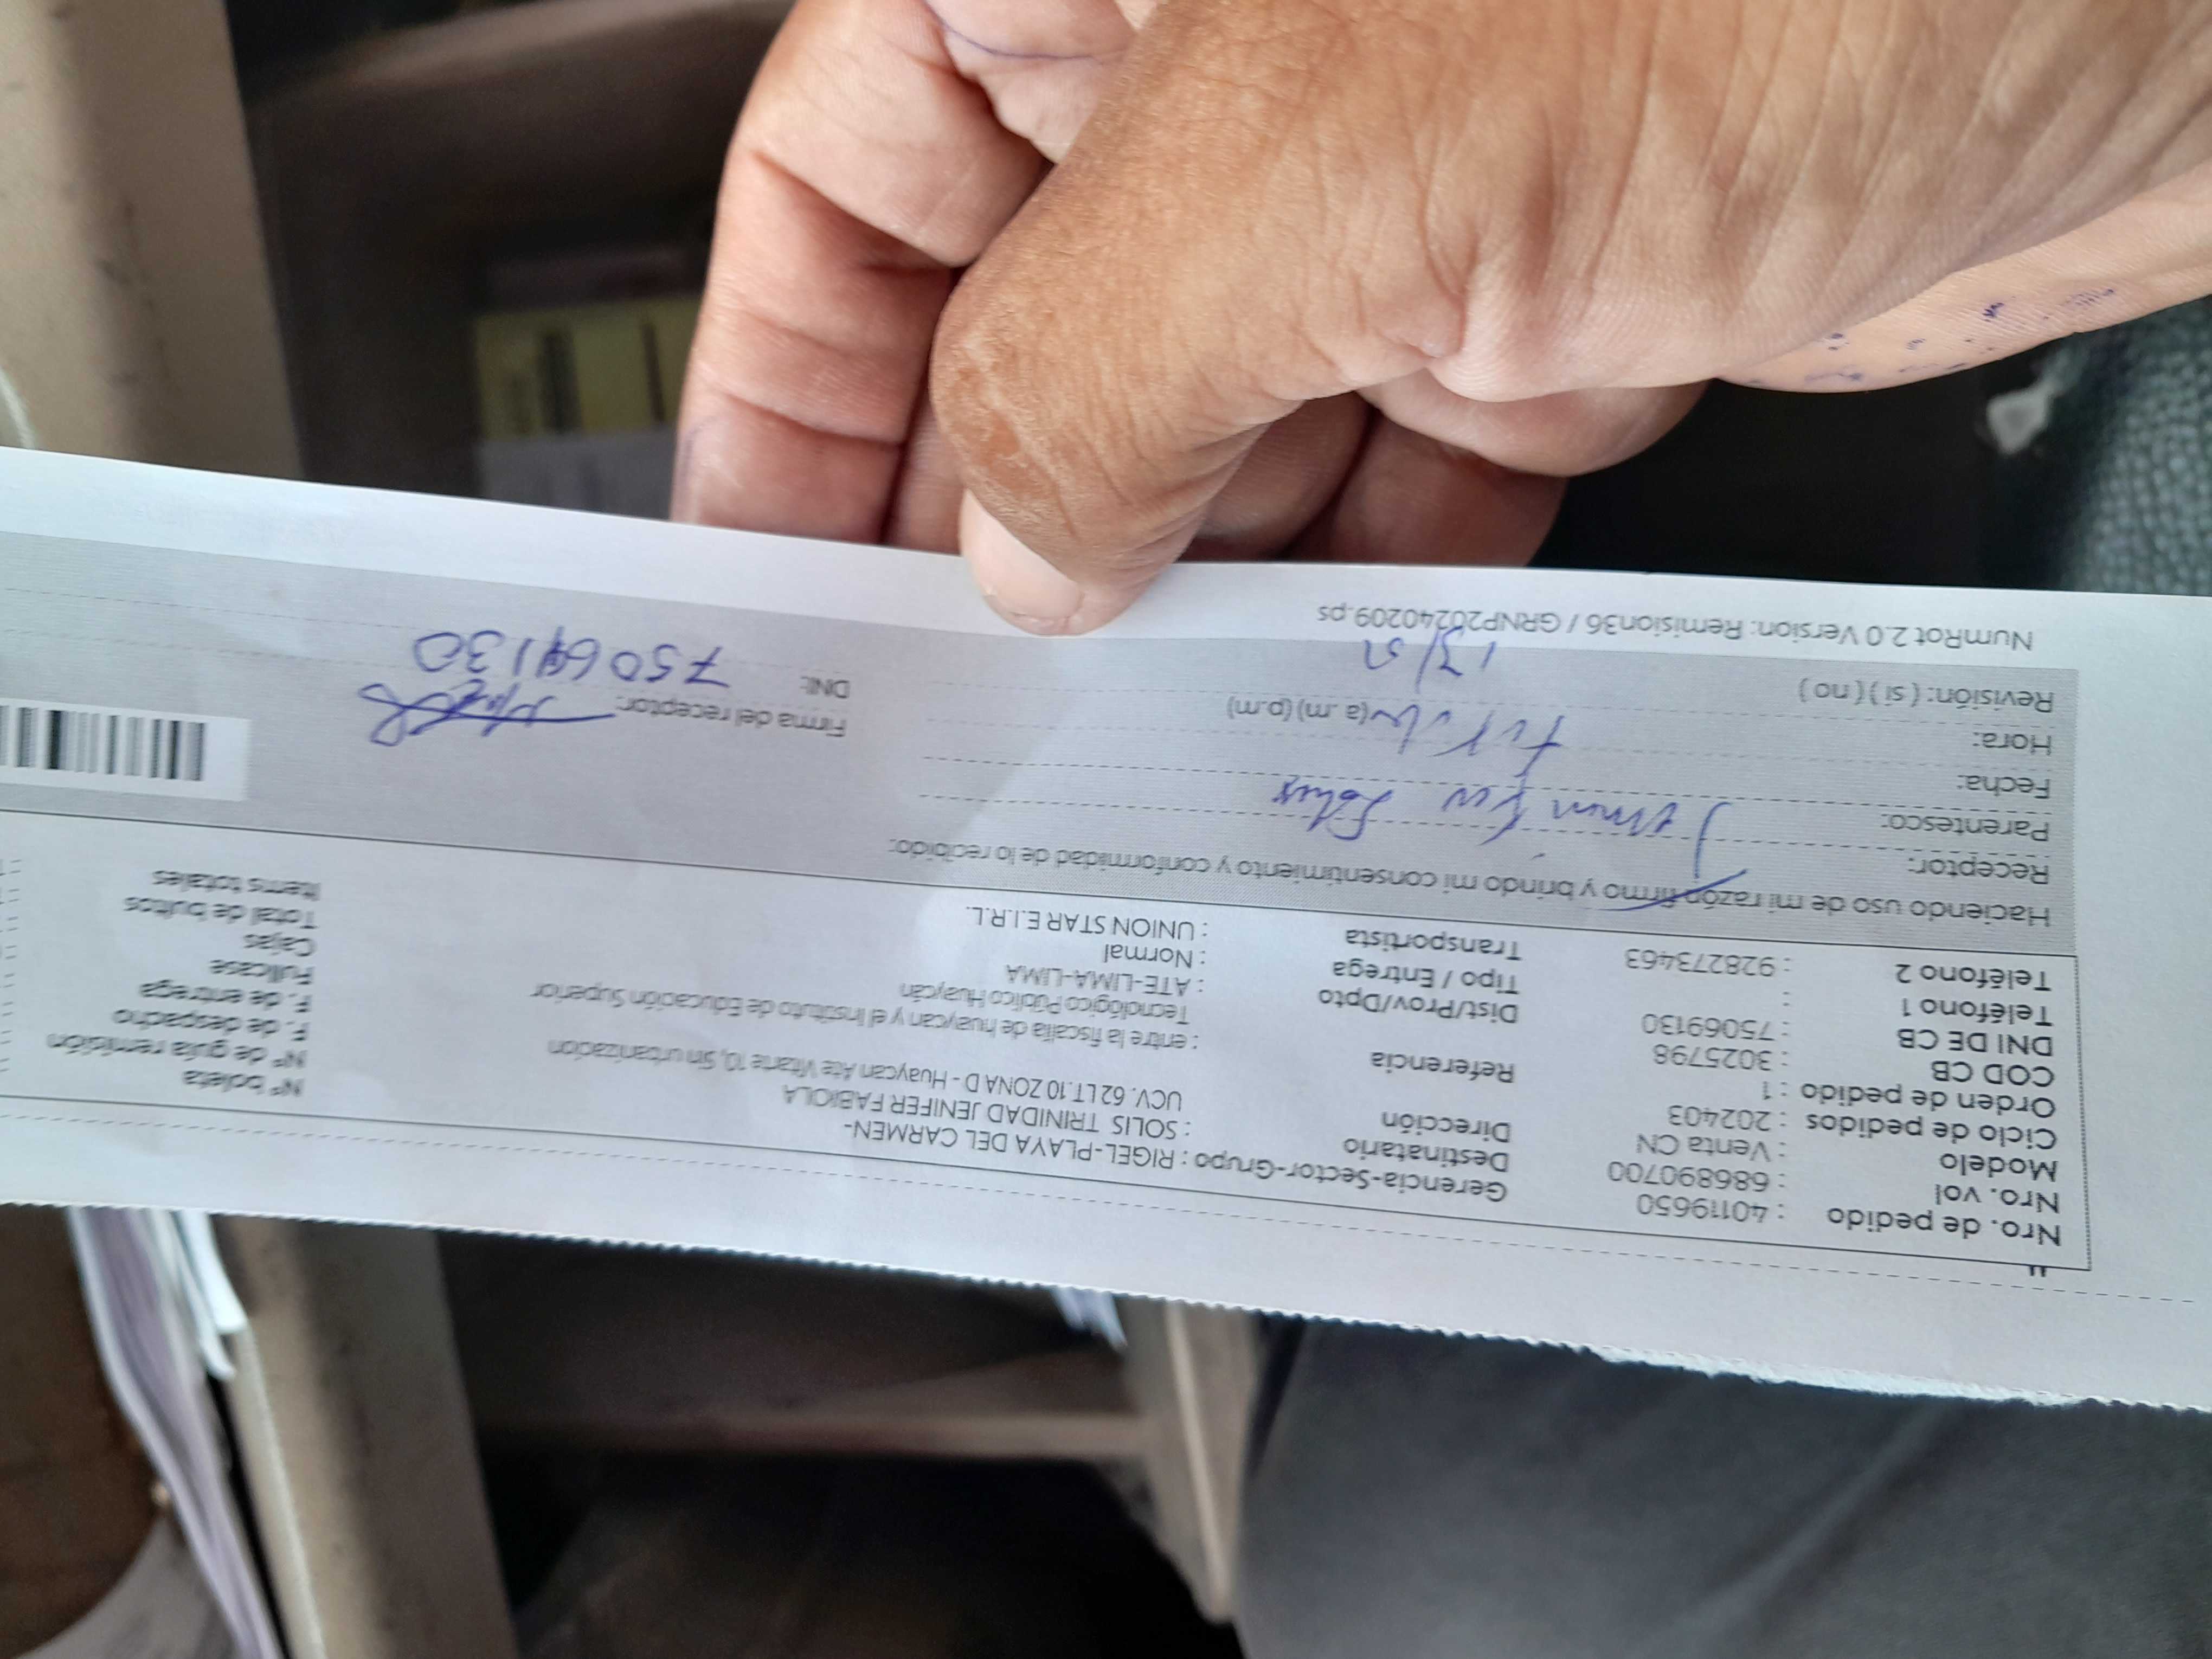 Nro. de pedido : 40119650
Nro. vol : 686890700
Modelo : Venta CN
Ciclo de pedidos : 202403
Orden de pedido : 1
COD CB : 3025798
DNI DE CB : 75069130
Teléfono 1 :
Teléfono 2 : 928273463
Gerencia-Sector-Grupo : RIGEL-PLAYA DEL CARMEN-
Destinatario : SOLIS TRINIDAD JENIFER FABIOLA
Dirección UCV. 62 LT.10 ZONA D - Huaycan Ate Vitarte 10, Sin urbanizacion
Referencia : entre la fiscalía de huaycan y el Instituto de Educación Superior
Tecnológico Público Huaycán
Dist/Prov/Dpto : ATE-LIMA-LIMA
Tipo / Entrega : Normal
Transportista : UNION STAR E.I.R.L.
N° boleta
N° de guía remisión
F. de despacho
F. de entrega
Fullcase
Cajas
Total de bultos
Items totales
Haciendo uso de mi razón firmo y brindo mi consentimiento y conformidad de lo recibido:
Receptor:
Parentesco:
Fecha:
Hora: (a.m) (p.m)
Revisión: ( si ) ( no )
Firma del receptor:
DNI: 75069130
NumRot 2.0 Version: Remision36 / GRNP20240209.ps